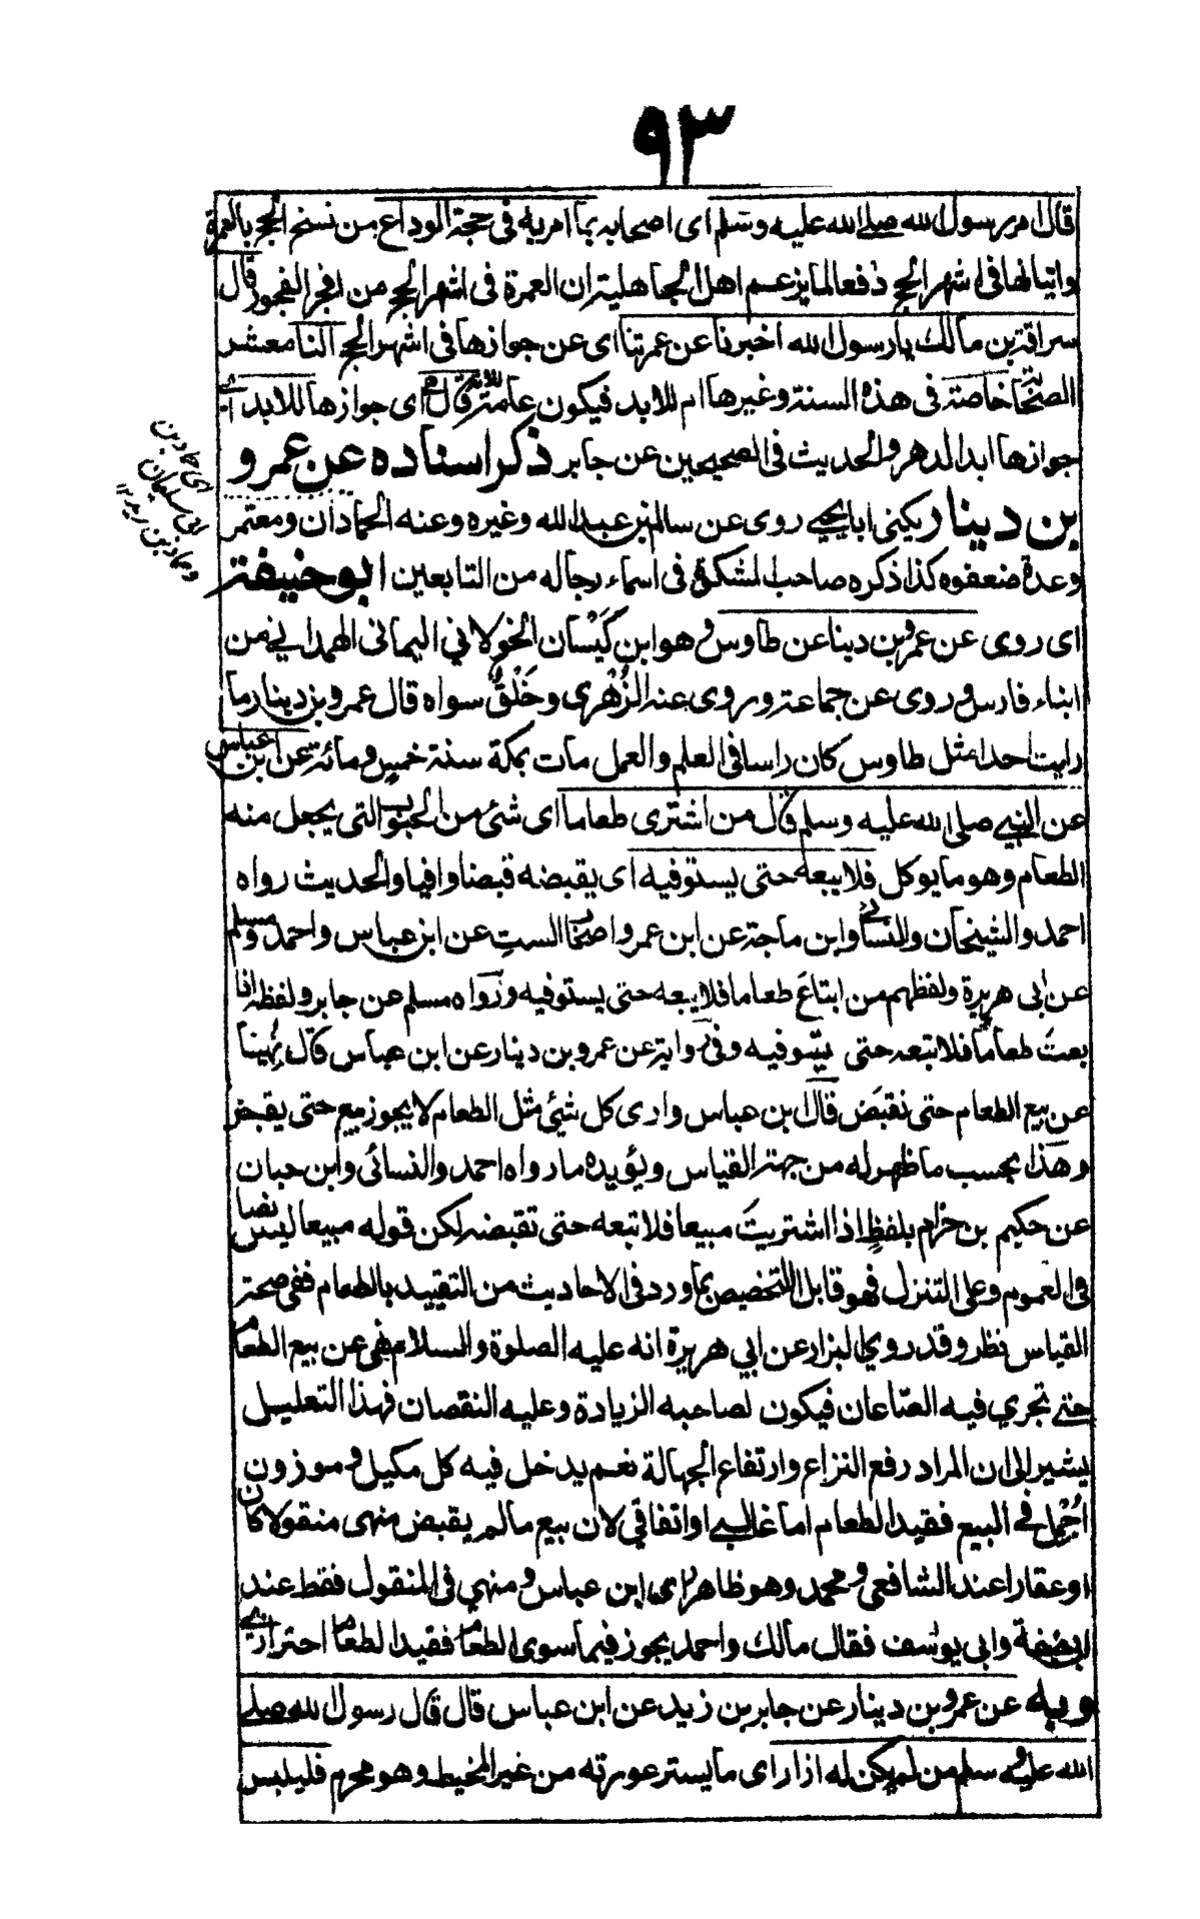 ٩٣
قال امر رسول الله صلے الله عليه وسلم اى اصحابه بما امر به فى حجة الوداع من نسخ الحج بالعمرة
واتيانها فى اشهر الحج دفعا لما يزعم اهل الجاهلية ان العمرة فى اشهر الحج من افجر الفجور قال
سراقة بن مالك يا رسول الله اخبرنا عن عمرتنا اى عن جوازها فى اشهر الحج النا معشر
الصحابة خاصة فى هذه السنة وغيرها ام للابد فيكون عامة للامة قال هى للابد اى جوازها للابد اى
جوازها ابد الدهر والحديث فى الصحيحين عن جابر ذكر اسناده عن عمرو
بن دينار يكنى ابا يحيے روى عن سالم بن عبد الله وغيره وعنه الحمادان ومعتمر
وعدة ضعفوه كذا ذكره صاحب المشكوة فى اسماء رجاله من التابعين ابو حنيفة
اى روى عن عمرو بن دينا عن طاوس وهو ابن كَيْسان الخولاني اليمانى الهمدانے من
ابناء فارس وروى عن جماعة وروى عنه الزُهْرى وخَلْقٌ سواه قال عمرو بن دينار ما
رايت احدا مثل طاوس كان راسا فى العلم والعمل مات بمكة سنة خمس ومائة عن ابن عباس
عن النبے صلى الله عليه وسلم قال من اشترى طعاما اى شئ من الحبوب التى يجعل منه
الطعام وهو ما يوكل فلا يبعه حتى يستوفيه اى يقبضه قبضا وافيا والحديث رواه
احمد والشيخان والنسائے وابن ماجة عن ابن عمر واصحاب الست عن ابن عباس واحمد ومسلم
عن ابى هريرة ولفظهم من ابتاعَ طعاما فلا يبعه حتى يستوفيه ورواه مسلم عن جابر ولفظه اذا
بعتَ طعاماً فلا تبعه حتى يستوفيه وفى رواية عن عمرو بن دينار عن ابن عباس قال نُهينا
عن بيع الطعام حتى نقبَض قال ابن عباس وارى كل شئي مثل الطعام لا يجوز بيع حتى يقبض
وهذا بحسب ما ظهر له من جهة القياس ويؤيده ما رواه احمد والنسائى وابن حبان
عن حكيم بن حزام بلفظِ اذا اشتريتَ مبيعا فلا تبعه حتى تقبضه لكن قوله مبيعا ليس نصا
فى العموم وعلى التنزل فهو قابل للتخصيص بما ورد فى الاحاديث من التقييد بالطعام ففى صحة
القياس نظر وقد روي البزار عن ابي هريرة انه عليه الصلوة والسلام نهى عن بيع الطعام
حتے تجري فيه الصّاعان فيكون لصاحبه الزيادة وعليه النقصان فهذا التعليل
يشير الى ان المراد رفع النزاع وارتفاع الجهالة نعم يدخل فيه كل مكيل وموزون
اُجْمِل فے البيع فقيد الطعام اما غالبے او اتفاقي لان بيع ما لم يقبض منهى منقولا كان
او عقارا عند الشافعى ومحمد وهو ظاهر راى ابن عباس ومنهي فى المنقول فقط عند
ابى حنيفة وابى يوسف فقال مالك واحمد يجوز فيما سوى الطعام فقيد الطعام احترازے
وبه عن عمرو بن دينار عن جابر بن زيد عن ابن عباس قال قال رسول الله صلے
الله عليه وسلم من لم يكن له ازار اى ما يستر عورته من غير المخيط وهو محرم فليلبس
اى حماد بن
ابى سليمان
وحماد بن زيد ١٢